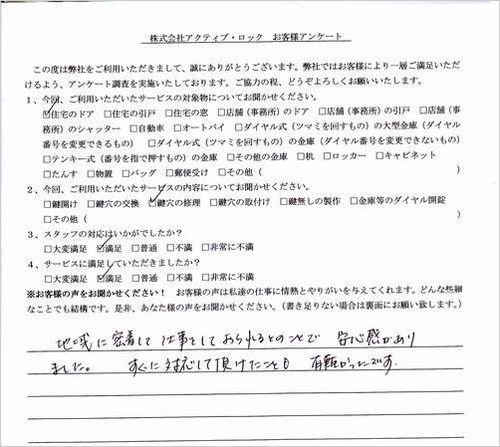 株式会社アクティブ・ロック　お客様アンケート
この度は弊社をご利用いただきまして、誠にありがとうございます。弊社ではお客様により一層ご満足いただ
けるよう、アンケート調査を実施いたしております。ご協力の程、どうぞよろしくお願いいたします。
1、今回、ご利用いただいたサービスの対象物についてお聞かせください。
☑住宅のドア　□住宅の引戸　□住宅の窓　□店舗（事務所）のドア　□店舗（事務所）の引戸　□店舗（事
務所）のシャッター　□自動車　□オートバイ　□ダイヤル式（ツマミを回すもの）の大型金庫（ダイヤル
番号を変更できるもの）　□ダイヤル式（ツマミを回すもの）の金庫（ダイヤル番号を変更できないもの）
□テンキー式（番号を指で押すもの）の金庫　□その他の金庫　□机　□ロッカー　□キャビネット
□たんす　□物置　□バッグ　□郵便受け　□その他（　　　　　）
2、今回、ご利用いただいたサービスの内容についてお聞かせください。
□鍵開け　□鍵穴の交換　☑鍵穴の修理　□鍵穴の取付け　□鍵無しの製作　□金庫等のダイヤル開錠
□その他（　　　　　）
3、スタッフの対応はいかがでしたか？
□大変満足　☑満足　□普通　□不満　□非常に不満
4、サービスに満足していただきましたか？
□大変満足　☑満足　□普通　□不満　□非常に不満
※お客様の声をお聞かせください！　お客様の声は私達の仕事に情熱とやりがいを与えてくれます。どんな些細
なことでも結構です。是非、あなた様の声をお聞かせください。（書き足りない場合は裏面にお願い致します。）
地域に密着して仕事をしておられるとのことで　安心感があり
ました。　すぐに対応して頂けたことも　有難かったです。